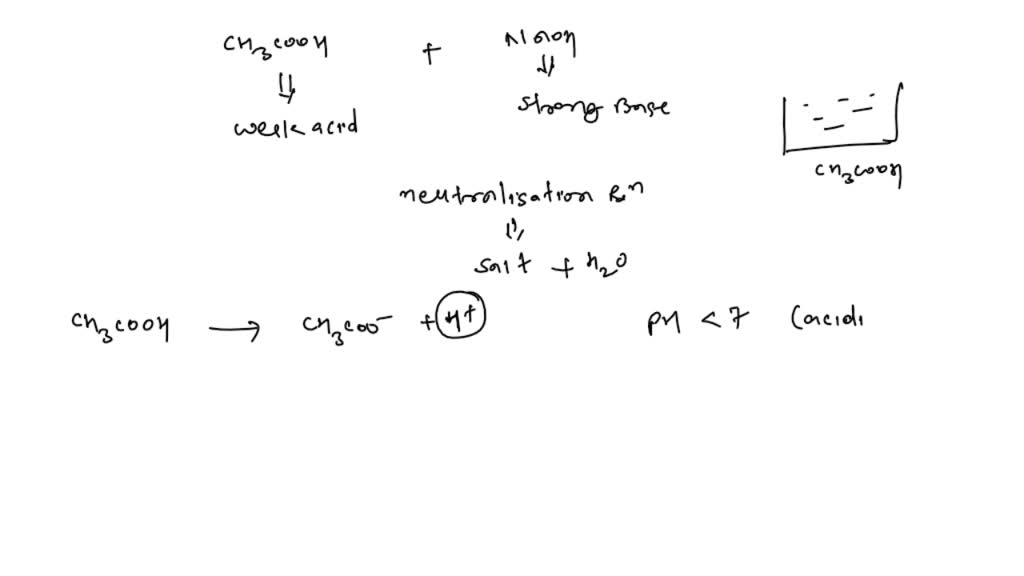 CH3COOH + NaOH
weak acid
strong Base
CH3COOH
neutralisation Rn
salt + H2O
CH3COOH → CH3COO− + H+ PH < 7 (acidi